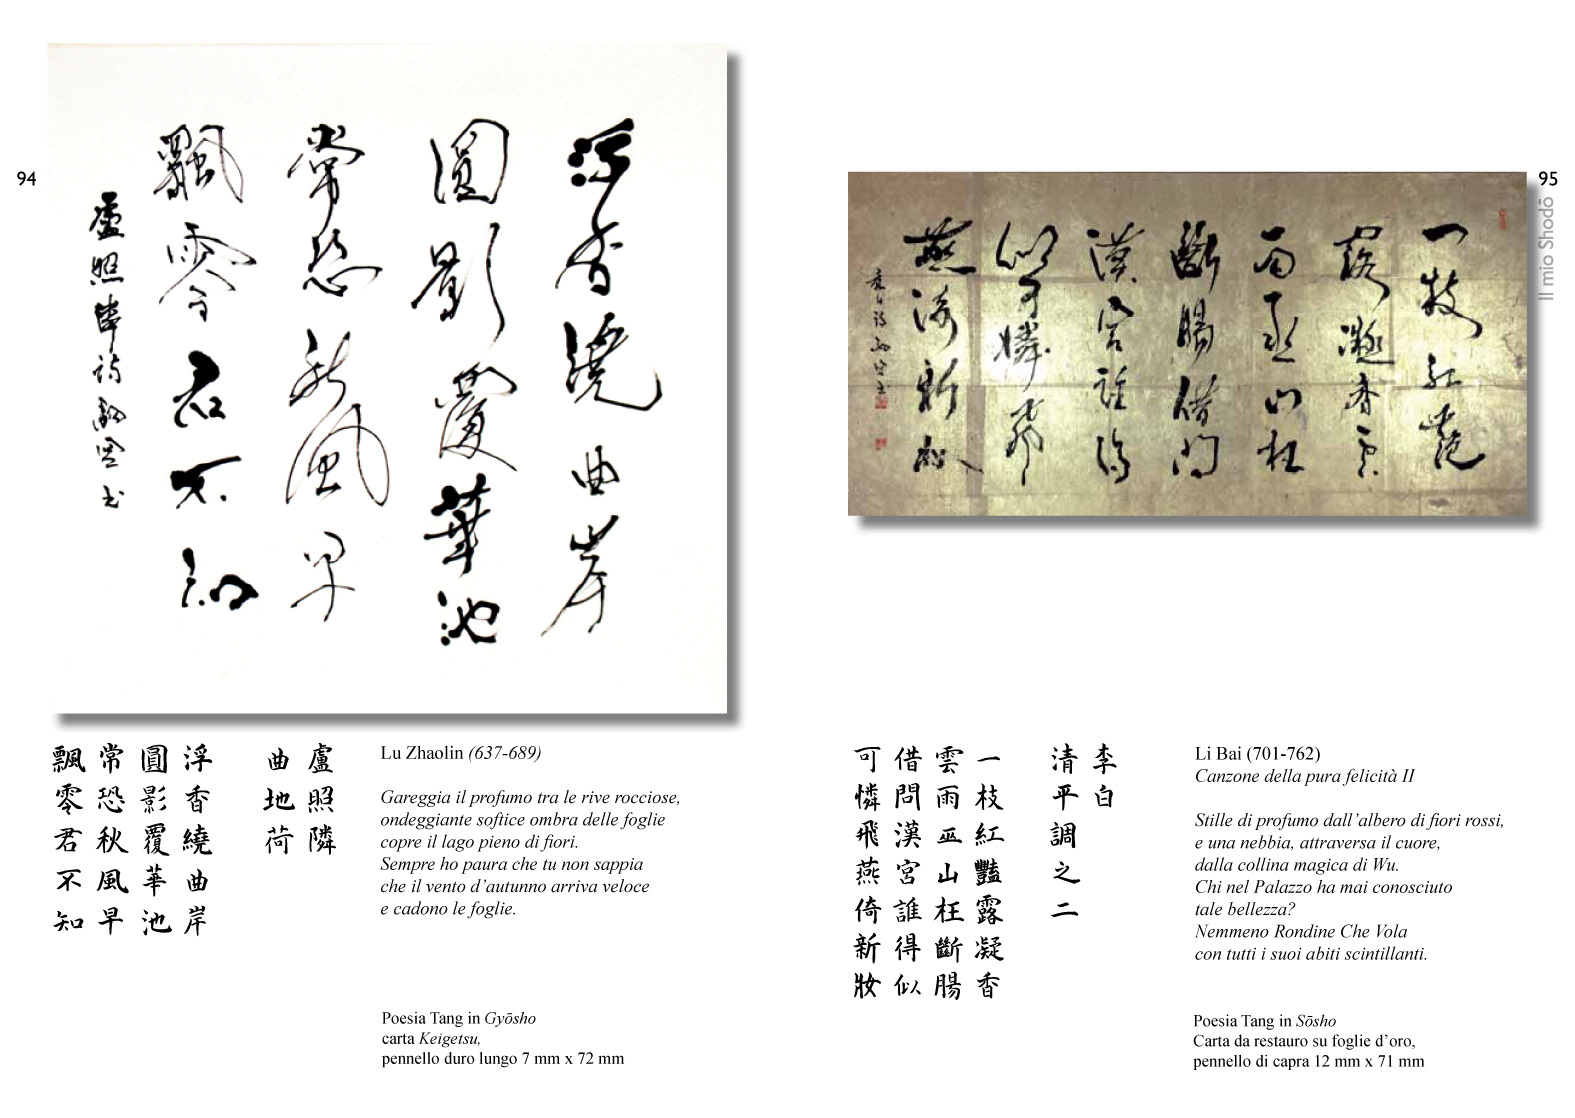 94
浮香繞曲岸
圓影覆華池
常恐秋風早
飄零君不知
盧照隣詩
浮香繞曲岸
圓影覆華池
常恐秋風早
飄零君不知
盧照隣
曲地荷
Lu Zhaolin (637-689)
Gareggia il profumo tra le rive rocciose,
ondeggiante softice ombra delle foglie
copre il lago pieno di fiori.
Sempre ho paura che tu non sappia
che il vento d'autunno arriva veloce
e cadono le foglie.
Poesia Tang in Gyōsho
carta Keigetsu,
pennello duro lungo 7 mm x 72 mm
95
Il mio Shodō
一枝紅艷
露凝香雲
雨巫山枉
斷腸借問
漢宮誰得
似可憐飛
燕倚新妝
李白
清平調之二
一枝紅豔露凝香
雲雨巫山枉斷腸
借問漢宮誰得似
可憐飛燕倚新妝
Li Bai (701-762)
Canzone della pura felicità II
Stille di profumo dall'albero di fiori rossi,
e una nebbia, attraversa il cuore,
dalla collina magica di Wu.
Chi nel Palazzo ha mai conosciuto
tale bellezza?
Nemmeno Rondine Che Vola
con tutti i suoi abiti scintillanti.
Poesia Tang in Sōsho
Carta da restauro su foglie d'oro,
pennello di capra 12 mm x 71 mm